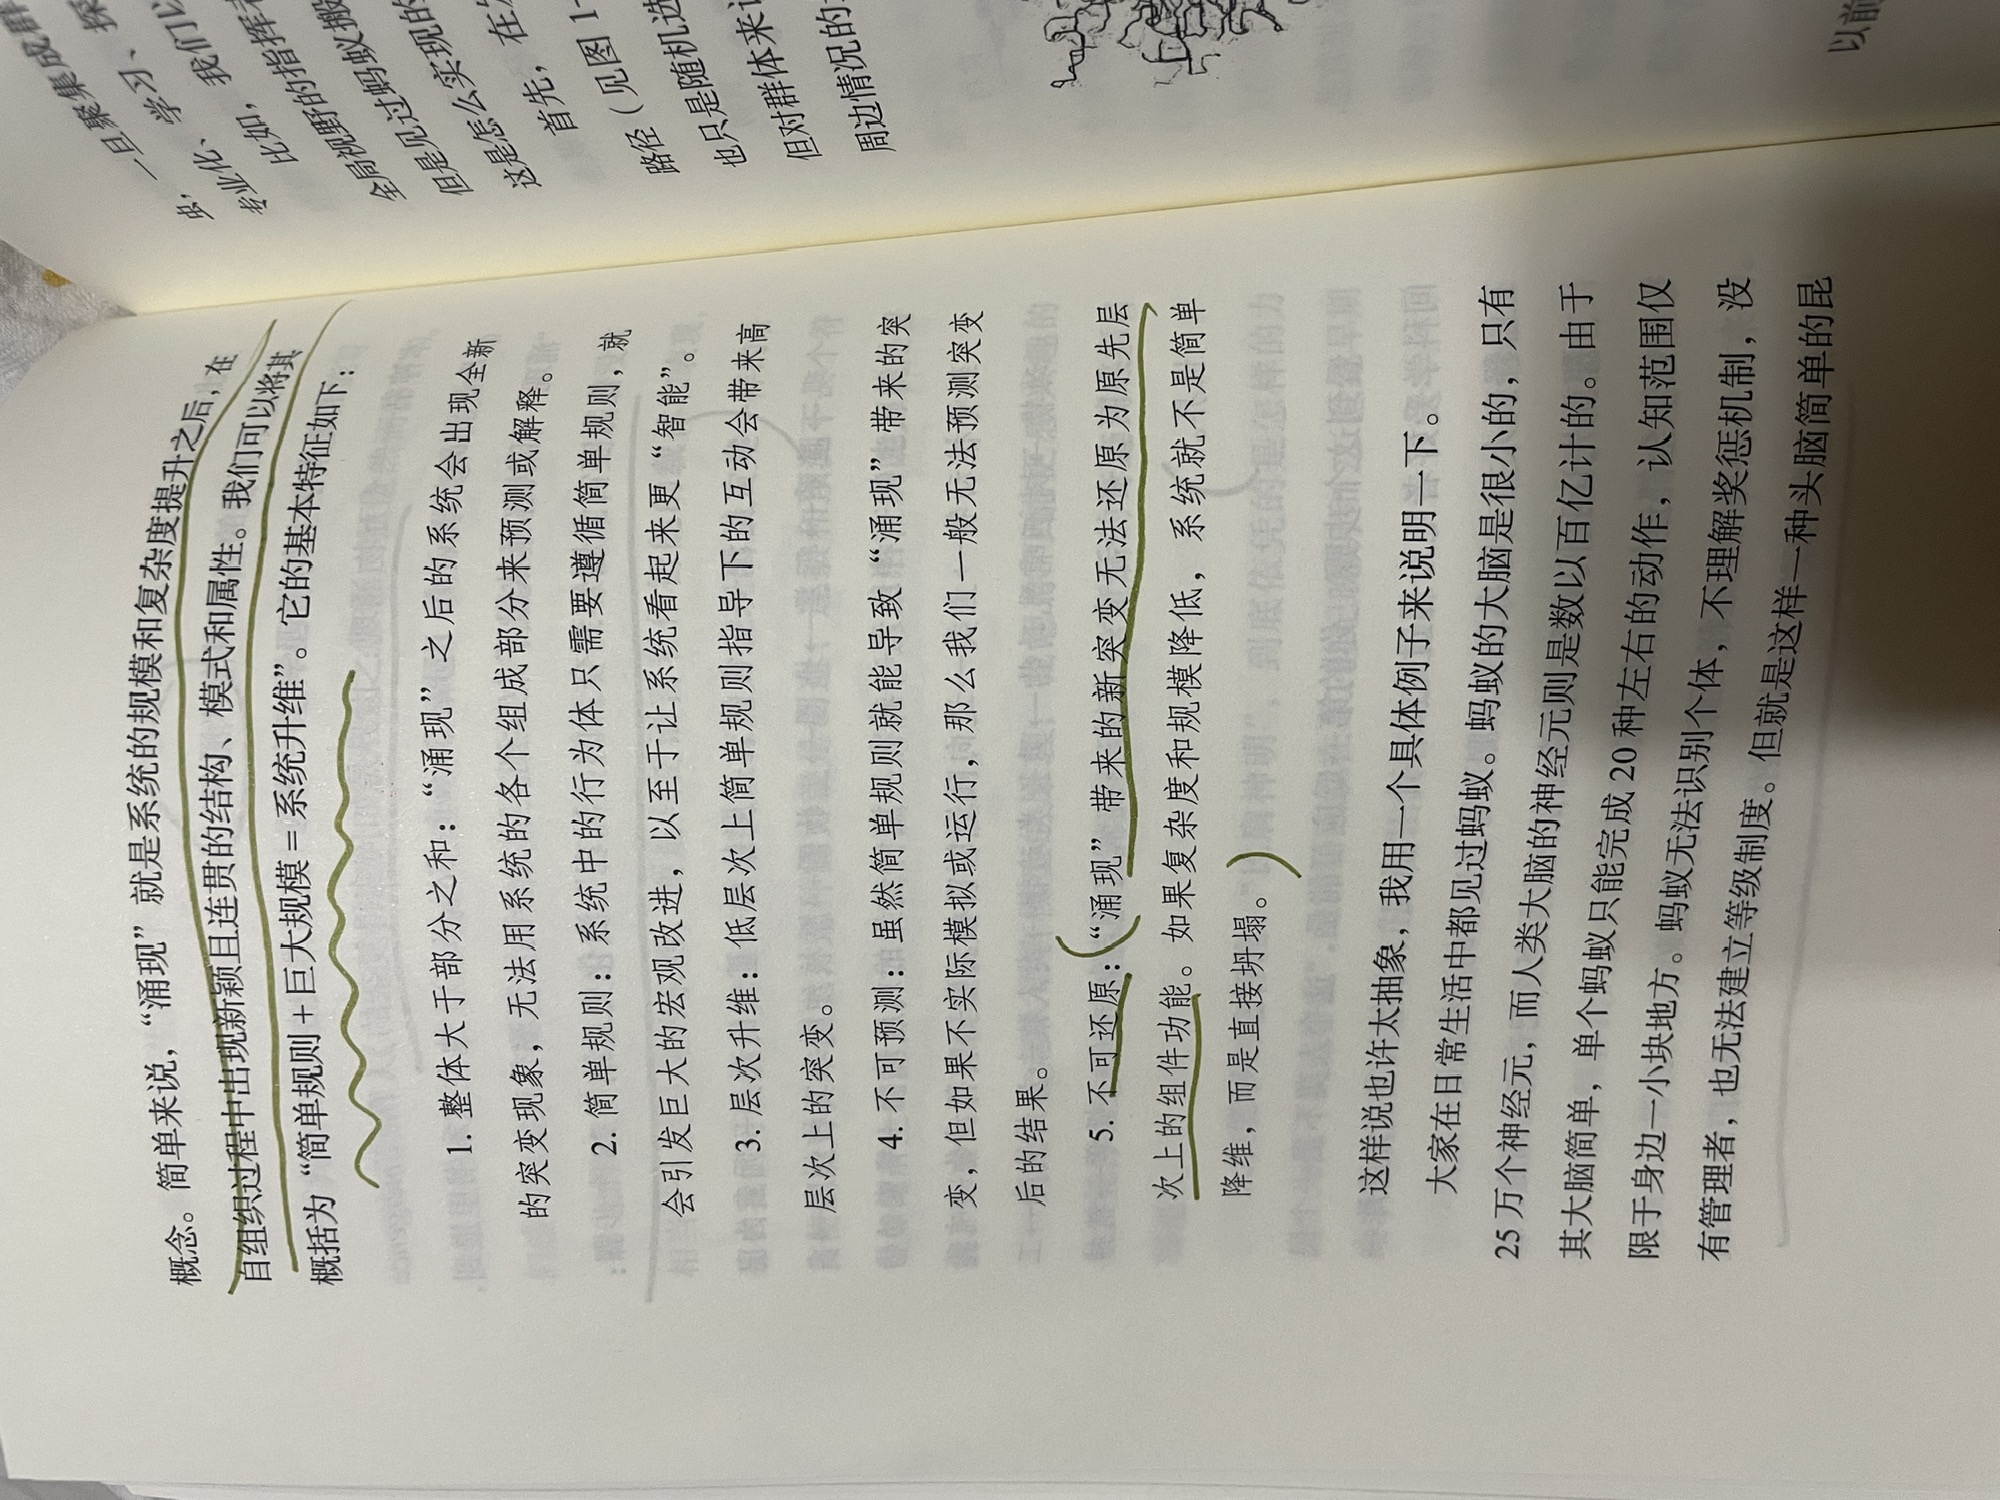 概念。简单来说，“涌现”就是系统的规模和复杂度提升之后，在
自组织过程中出现新颖且连贯的结构、模式和属性。我们可以将其
概括为“简单规则+巨大规模=系统升维”。它的基本特征如下：
1. 整体大于部分之和：“涌现”之后的系统会出现全新
的突变现象，无法用系统的各个组成部分来预测或解释。
2. 简单规则：系统中的行为体只需要遵循简单规则，就
会引发巨大的宏观改进，以至于让系统看起来更“智能”。
3. 层次升维：低层次上简单规则指导下的互动会带来高
层次上的突变。
4. 不可预测：虽然简单规则就能导致“涌现”带来的突
变，但如果不实际模拟或运行，那么我们一般无法预测突变
后的结果。
5. 不可还原：“涌现”带来的新突变无法还原为原先层
次上的组件功能。如果复杂度和规模降低，系统就不是简单
降维，而是直接坍塌。
这样说也许太抽象，我用一个具体例子来说明一下。
大家在日常生活中都见过蚂蚁。蚂蚁的大脑是很小的，只有
25 万个神经元，而人类大脑的神经元则是数以百亿计的。由于
其大脑简单，单个蚂蚁只能完成 20 种左右的动作，认知范围仅
限于身边一小块地方。蚂蚁无法识别个体，不理解奖惩机制，没
有管理者，也无法建立等级制度。但就是这样一种头脑简单的昆
虫，一旦聚集成群
学习、探
专业化、我们以
比如，指挥者
全局视野的蚂蚁搬
但是见过蚂蚁搬
这是怎么实现的
首先，在
路径（见图 1-
也只是随机选
但对群体来
周边情况的
以前